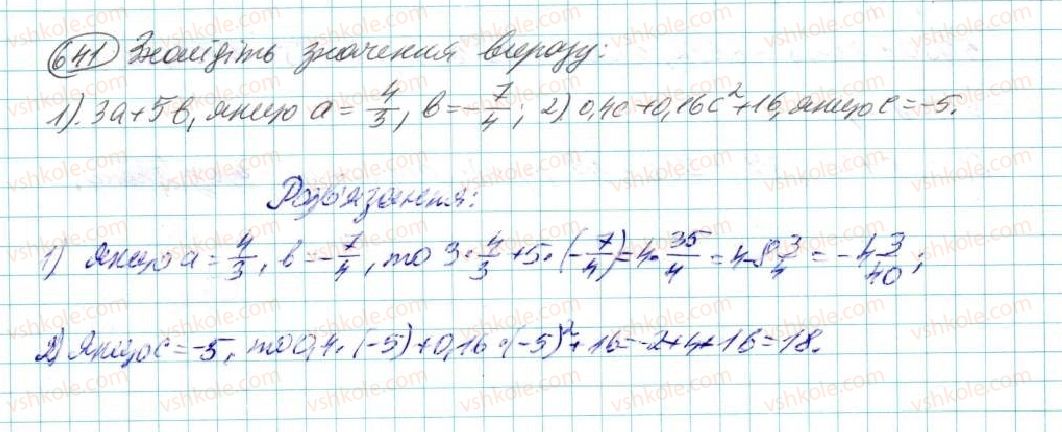 641 Знайдіть значення виразу:
1). 3a+5b, якщо a = 4/3, b = -7/4; 2) 0,4c+0,16c²+16, якщо c = -5.
Розв'язання:
1) якщо a = 4/3, b = -7/4, то 3·4/3+5·(-7/4)=4-35/4=4-8 3/4=-4 3/40;
2) Якщо c = -5, то 0,4·(-5)+0,16·(-5)²+16=-2+4+16=18.
vshkole.com